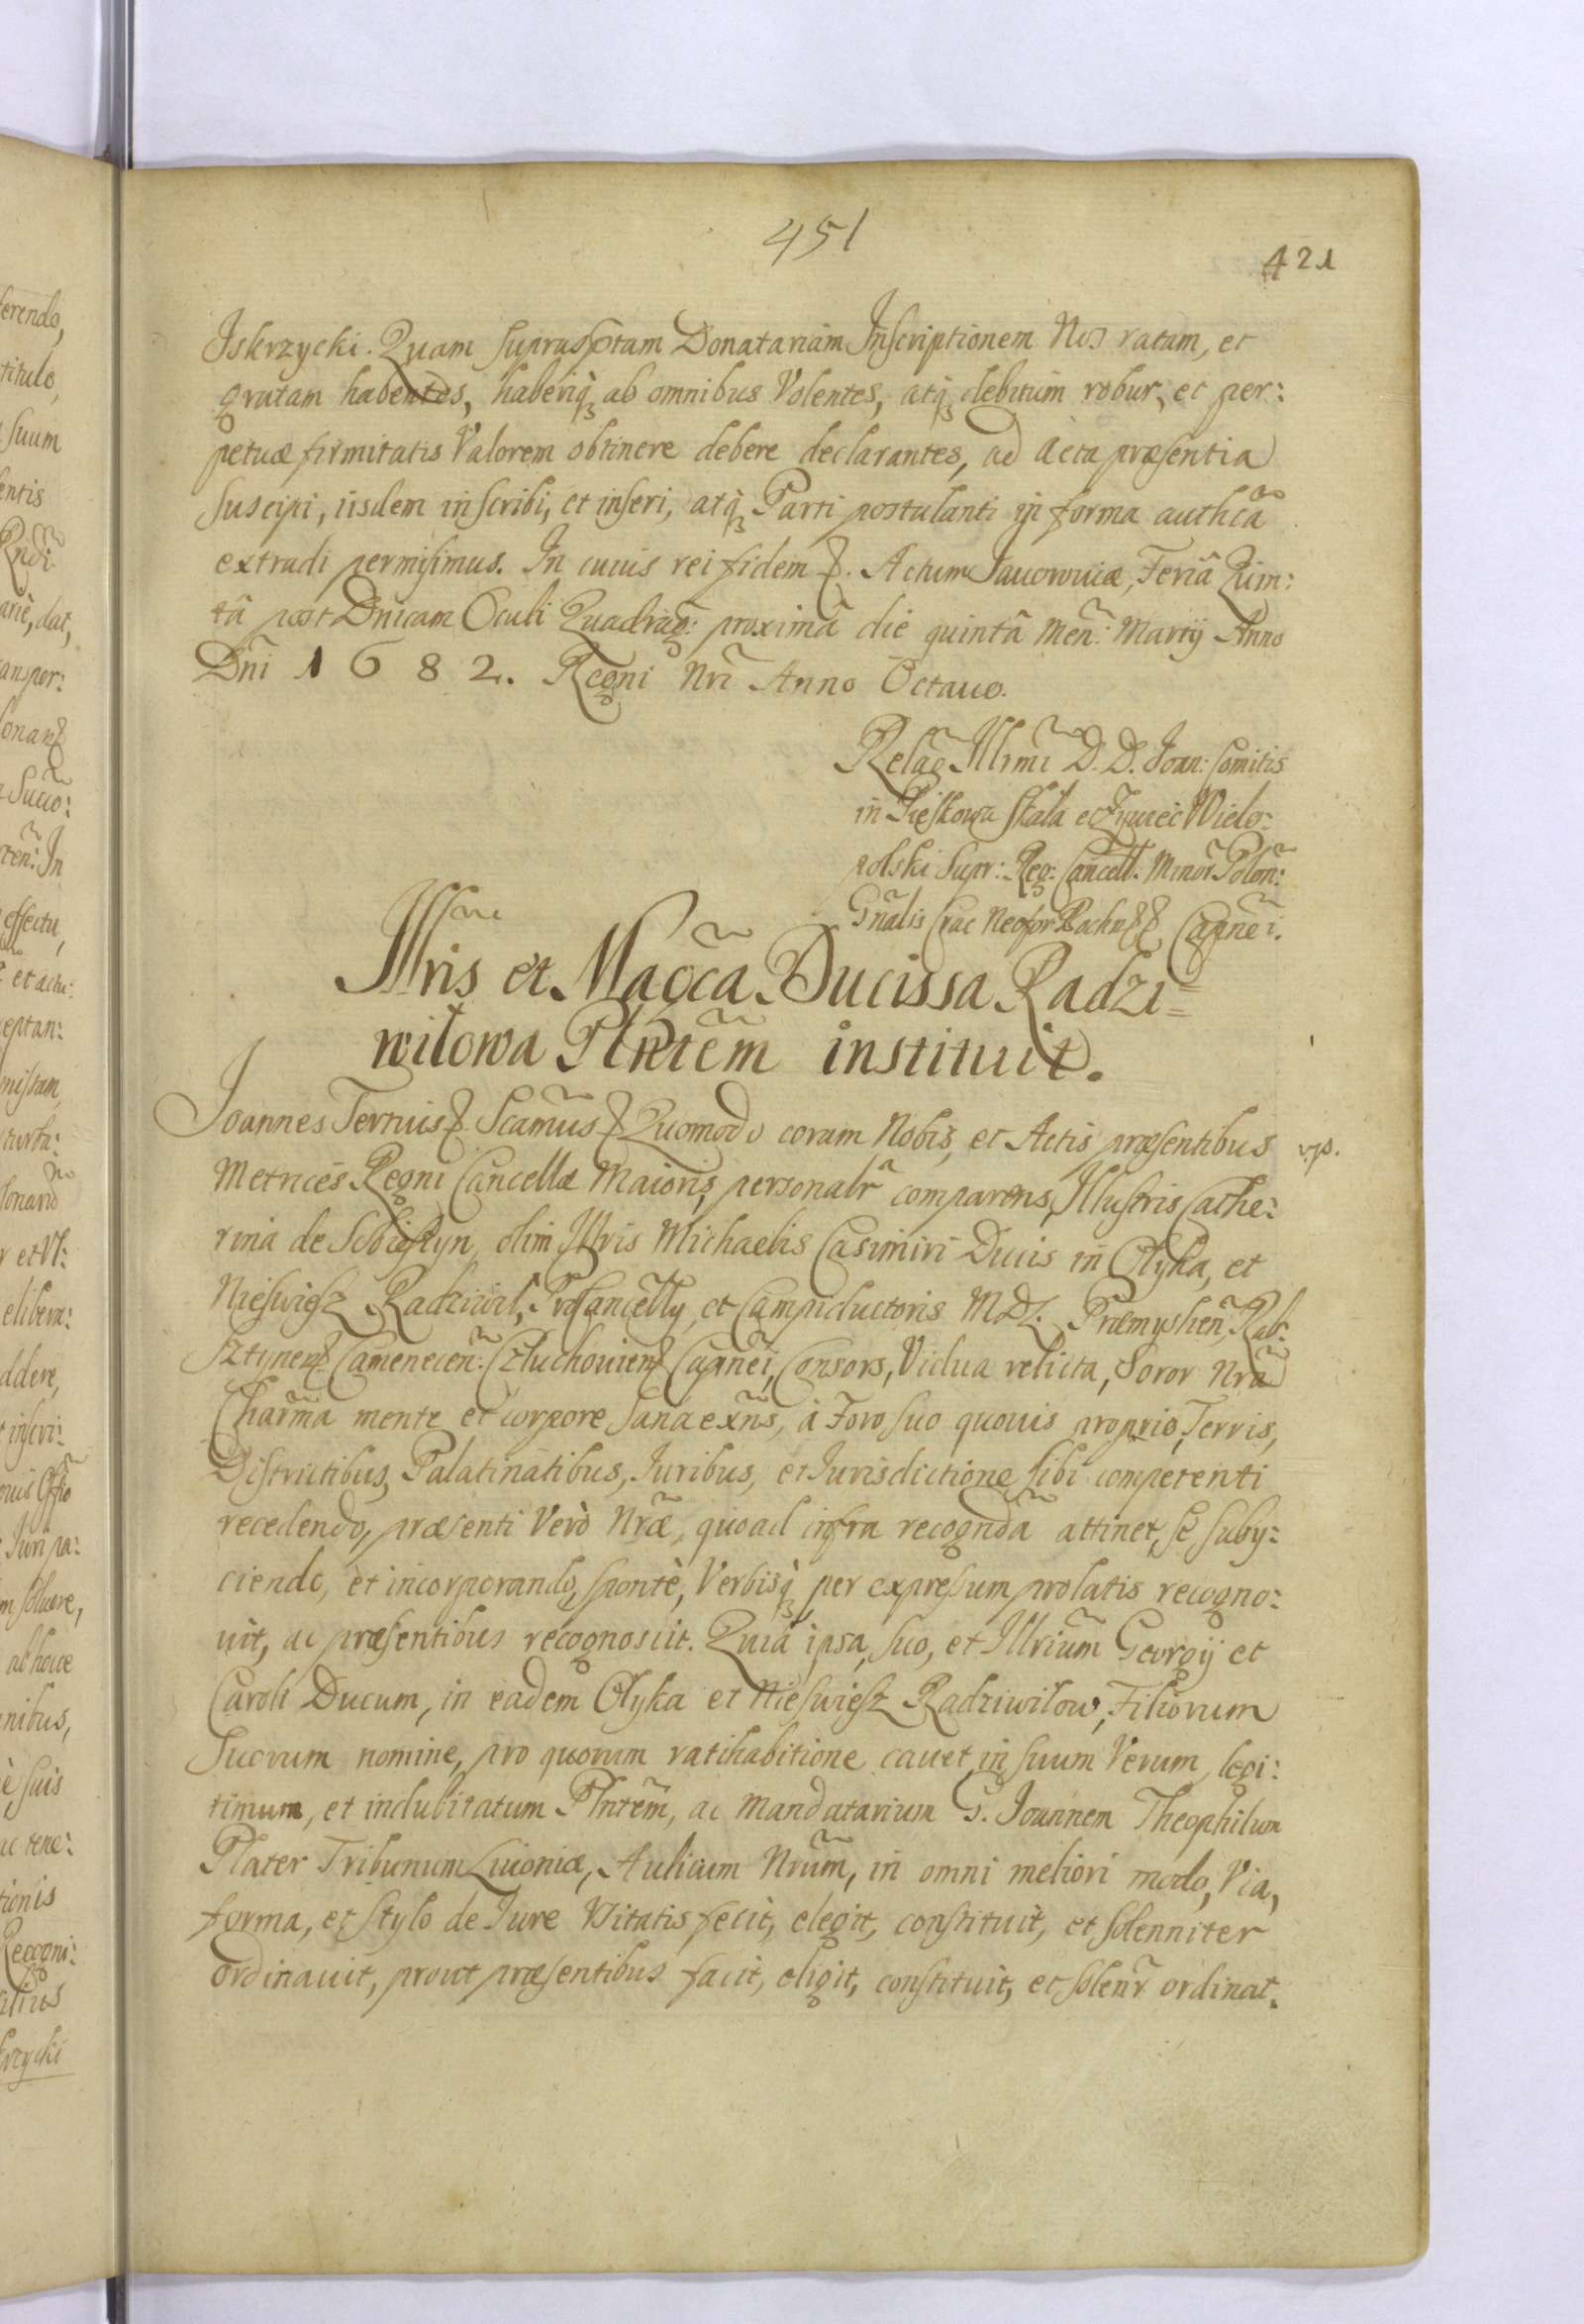 451
421
Iskrzycki. Quam suprasptam Donatariam Inscriptionem Nos ratam, et
gratam habentes, haberiq̀ ab omnibus Volentes, atq̀ debitum robur, et per:
petuæ firmitatis Valorem obtinere debere declarantes, ad Acta præsentia
suscipi, iisdem inscribi, et inseri, atq̀ Parti postulanti in forma authcã
extradi permisimus. In cuius rei fidem &. Actum Jauorouiæ, Feriâ Quin:
tâ post Dnicam Oculi Quadrag: proximâ die quintâ Men: Martij Anno
Dñi 1682. Regni Nri Anno Octauo.
Relão Illmi D. D. Joan: Comitis
in Pieskowa Skała et Zywiec Wielo:
polski Supr: Reg: Cancell. Minor Polon:
Gñalis Crac Neofor Bochn && Capnei.
Illris et Magca Ducissa Radzi=
wiłowa Plntẽm instituit.
Joannes Tertius & Scamus & Quomodo coram Nobis, et Actis præsentibus
v.p.
Metrices Regni Cancellæ Maioris, personalr comparens, Illustris Cathe:
rina de Sobieszyn, olim Illris Michaelis Casimiri Ducis in Ołyka, et
Nieswiesz Radziwil, ProCancelly, et Campiductoris MDL. Præmyslien, Rab:
sztynen Camenecen: Człuchouien Capnei, Consors, Vidua relicta, Soror Nra
Charma mente et corpore sana exñs, à Foro suo quouis proprio, Terris,
Districtibus, Palatinatibus, Iuribus, et Iurisdictione sibi competenti
recedendo, præsenti Verò Nræ, quoad infra recognda attinet, se suby:
ciendo, et incorporando, spontè, Verbisq̀ per expressum prolatis recogno:
uit, ac præsentibus recognoscit. Quia ipsa, suo, et Illrium Georgij et
Caroli Ducum, in eadem Ołyka et Nieswiesz Radziwiłow, Filiorum
Suorum nomine, pro quorum ratihabitione cauet, in suum Verum, legi:
timum, et indubitatum Plntẽm, ac Mandatarium G. Joannem Theophilum
Plater Tribunum Liuoniæ, Aulicum Nrum, in omni meliori modo, Via,
forma, et stylo de Iure Vsitatis fecit, elegit, constituit, et solenniter
ordinauit, prout præsentibus facit, eligit, constituit, et solenr ordinat.